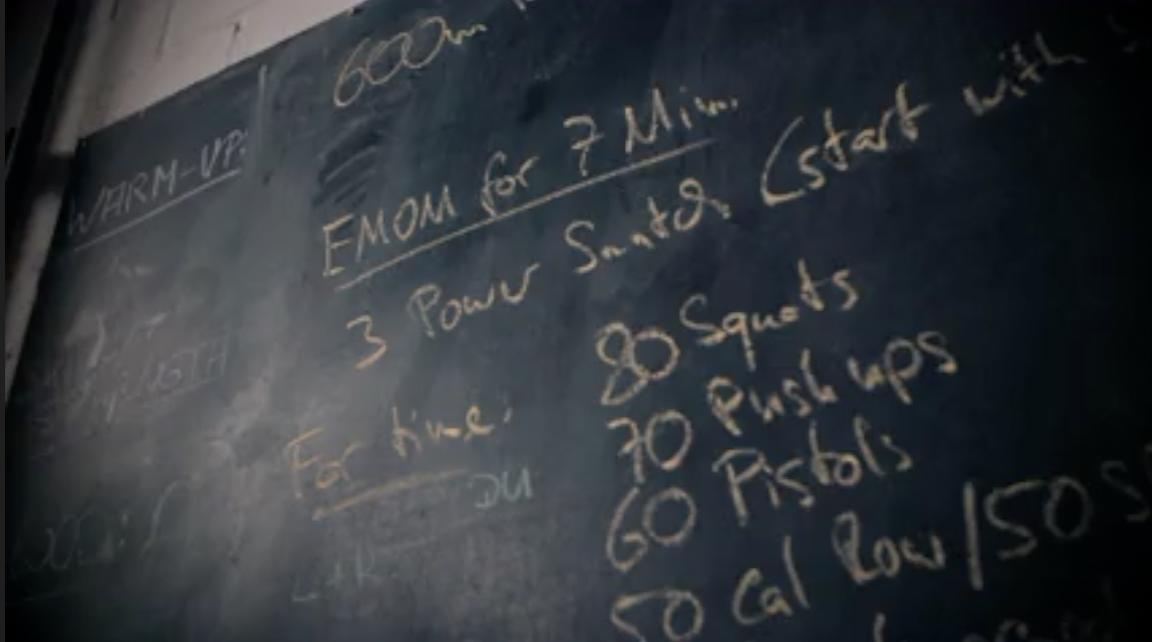 600m
WARM-UP:
EMOM for 7 Min.
3 Power Snatch (start with
For time:
80 Squats
70 Push ups
60 Pistols
50 Cal Row/150
DU